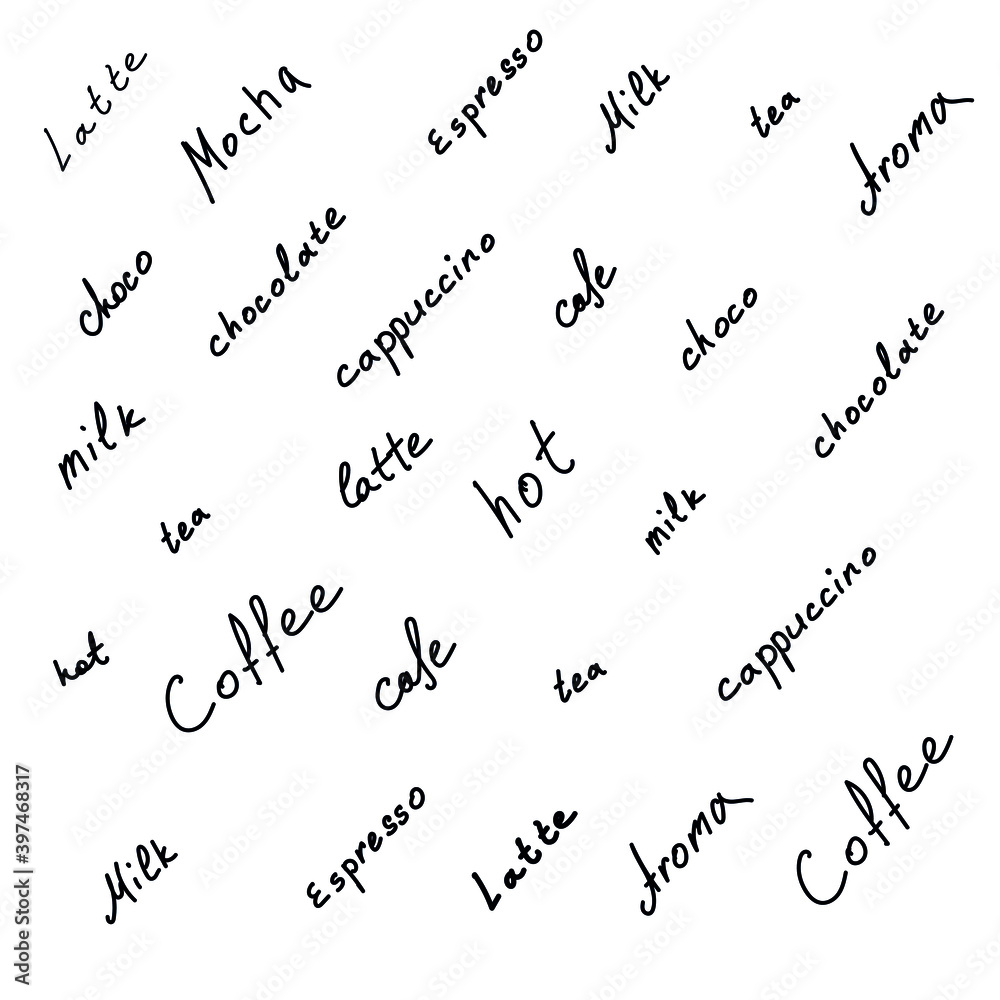 Latte
Mocha
Espresso
Milk
tea
Aroma
choco
chocolate
cappuccino
cafe
choco
chocolate
milk
latte
hot
milk
tea
cappuccino
hot
Coffee
cafe
tea
Milk
Espresso
Latte
Aroma
Coffee
Adobe Stock | #397468317